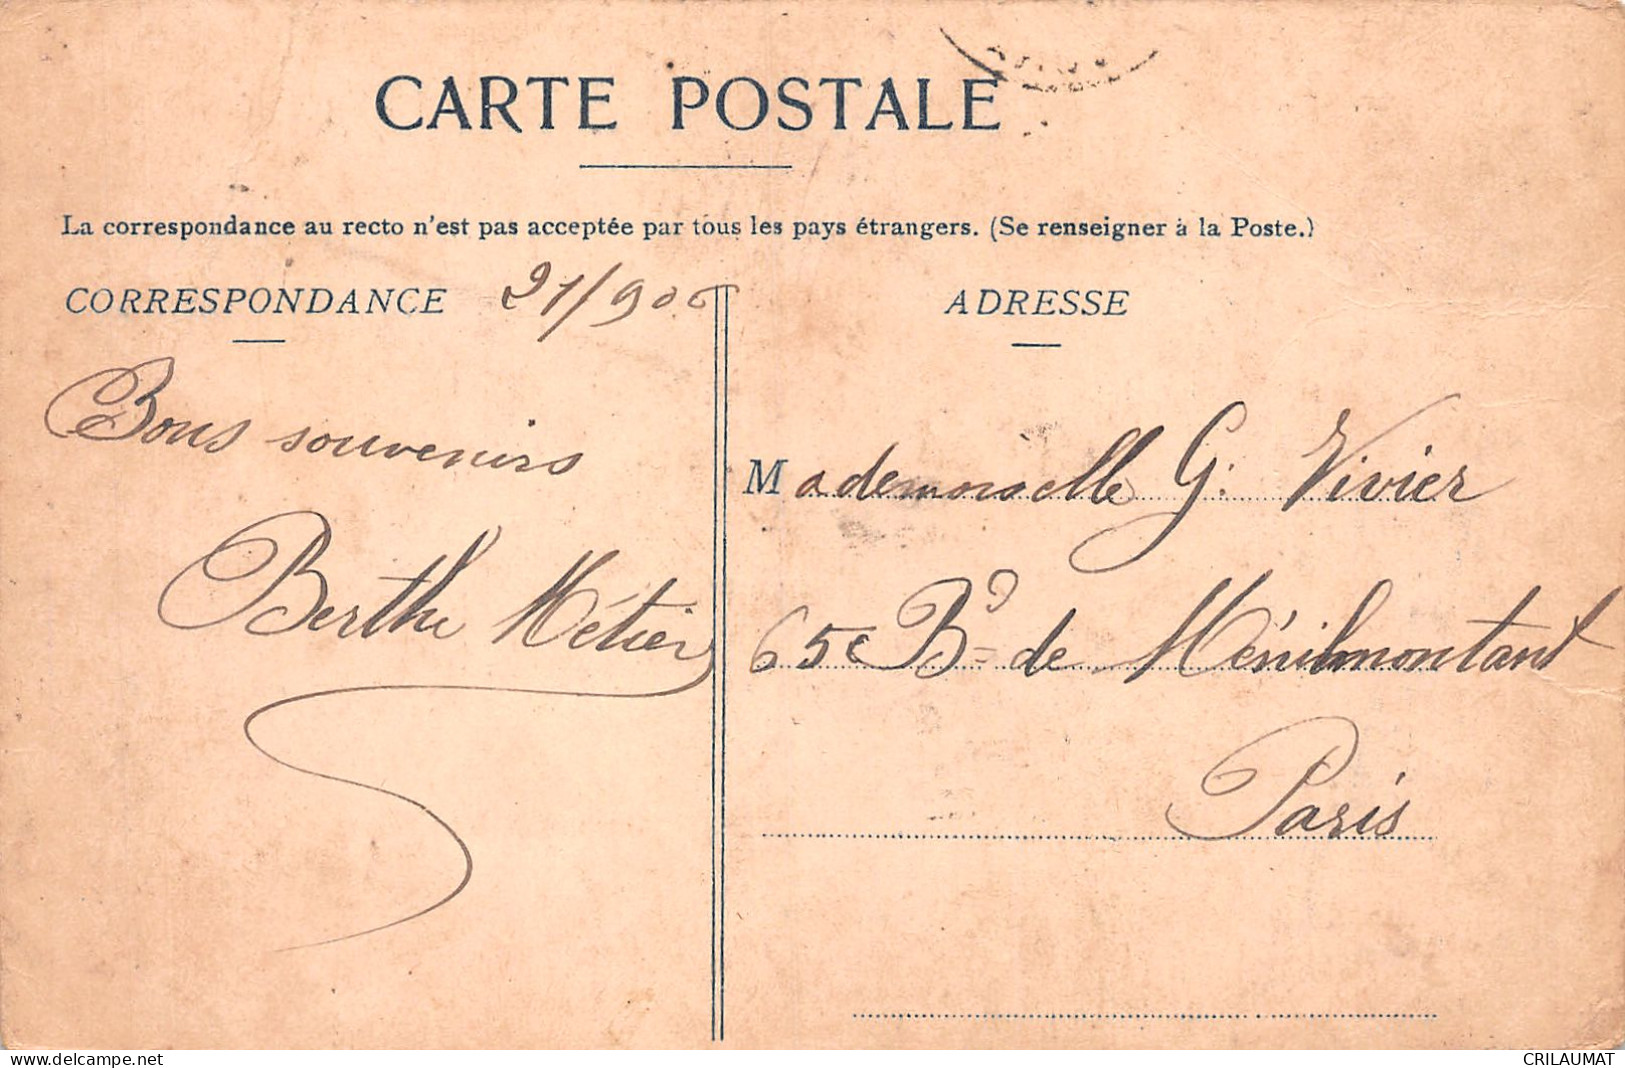 CARTE POSTALE
La correspondance au recto n'est pas acceptée par tous les pays étrangers. (Se renseigner à la Poste.)
CORRESPONDANCE
21/906
Bons souvenirs
Berthe Métier
ADRESSE
Mademoiselle G. Vivier
65c Bd de Ménilmontant
Paris
www.delcampe.net
CRILAUMAT